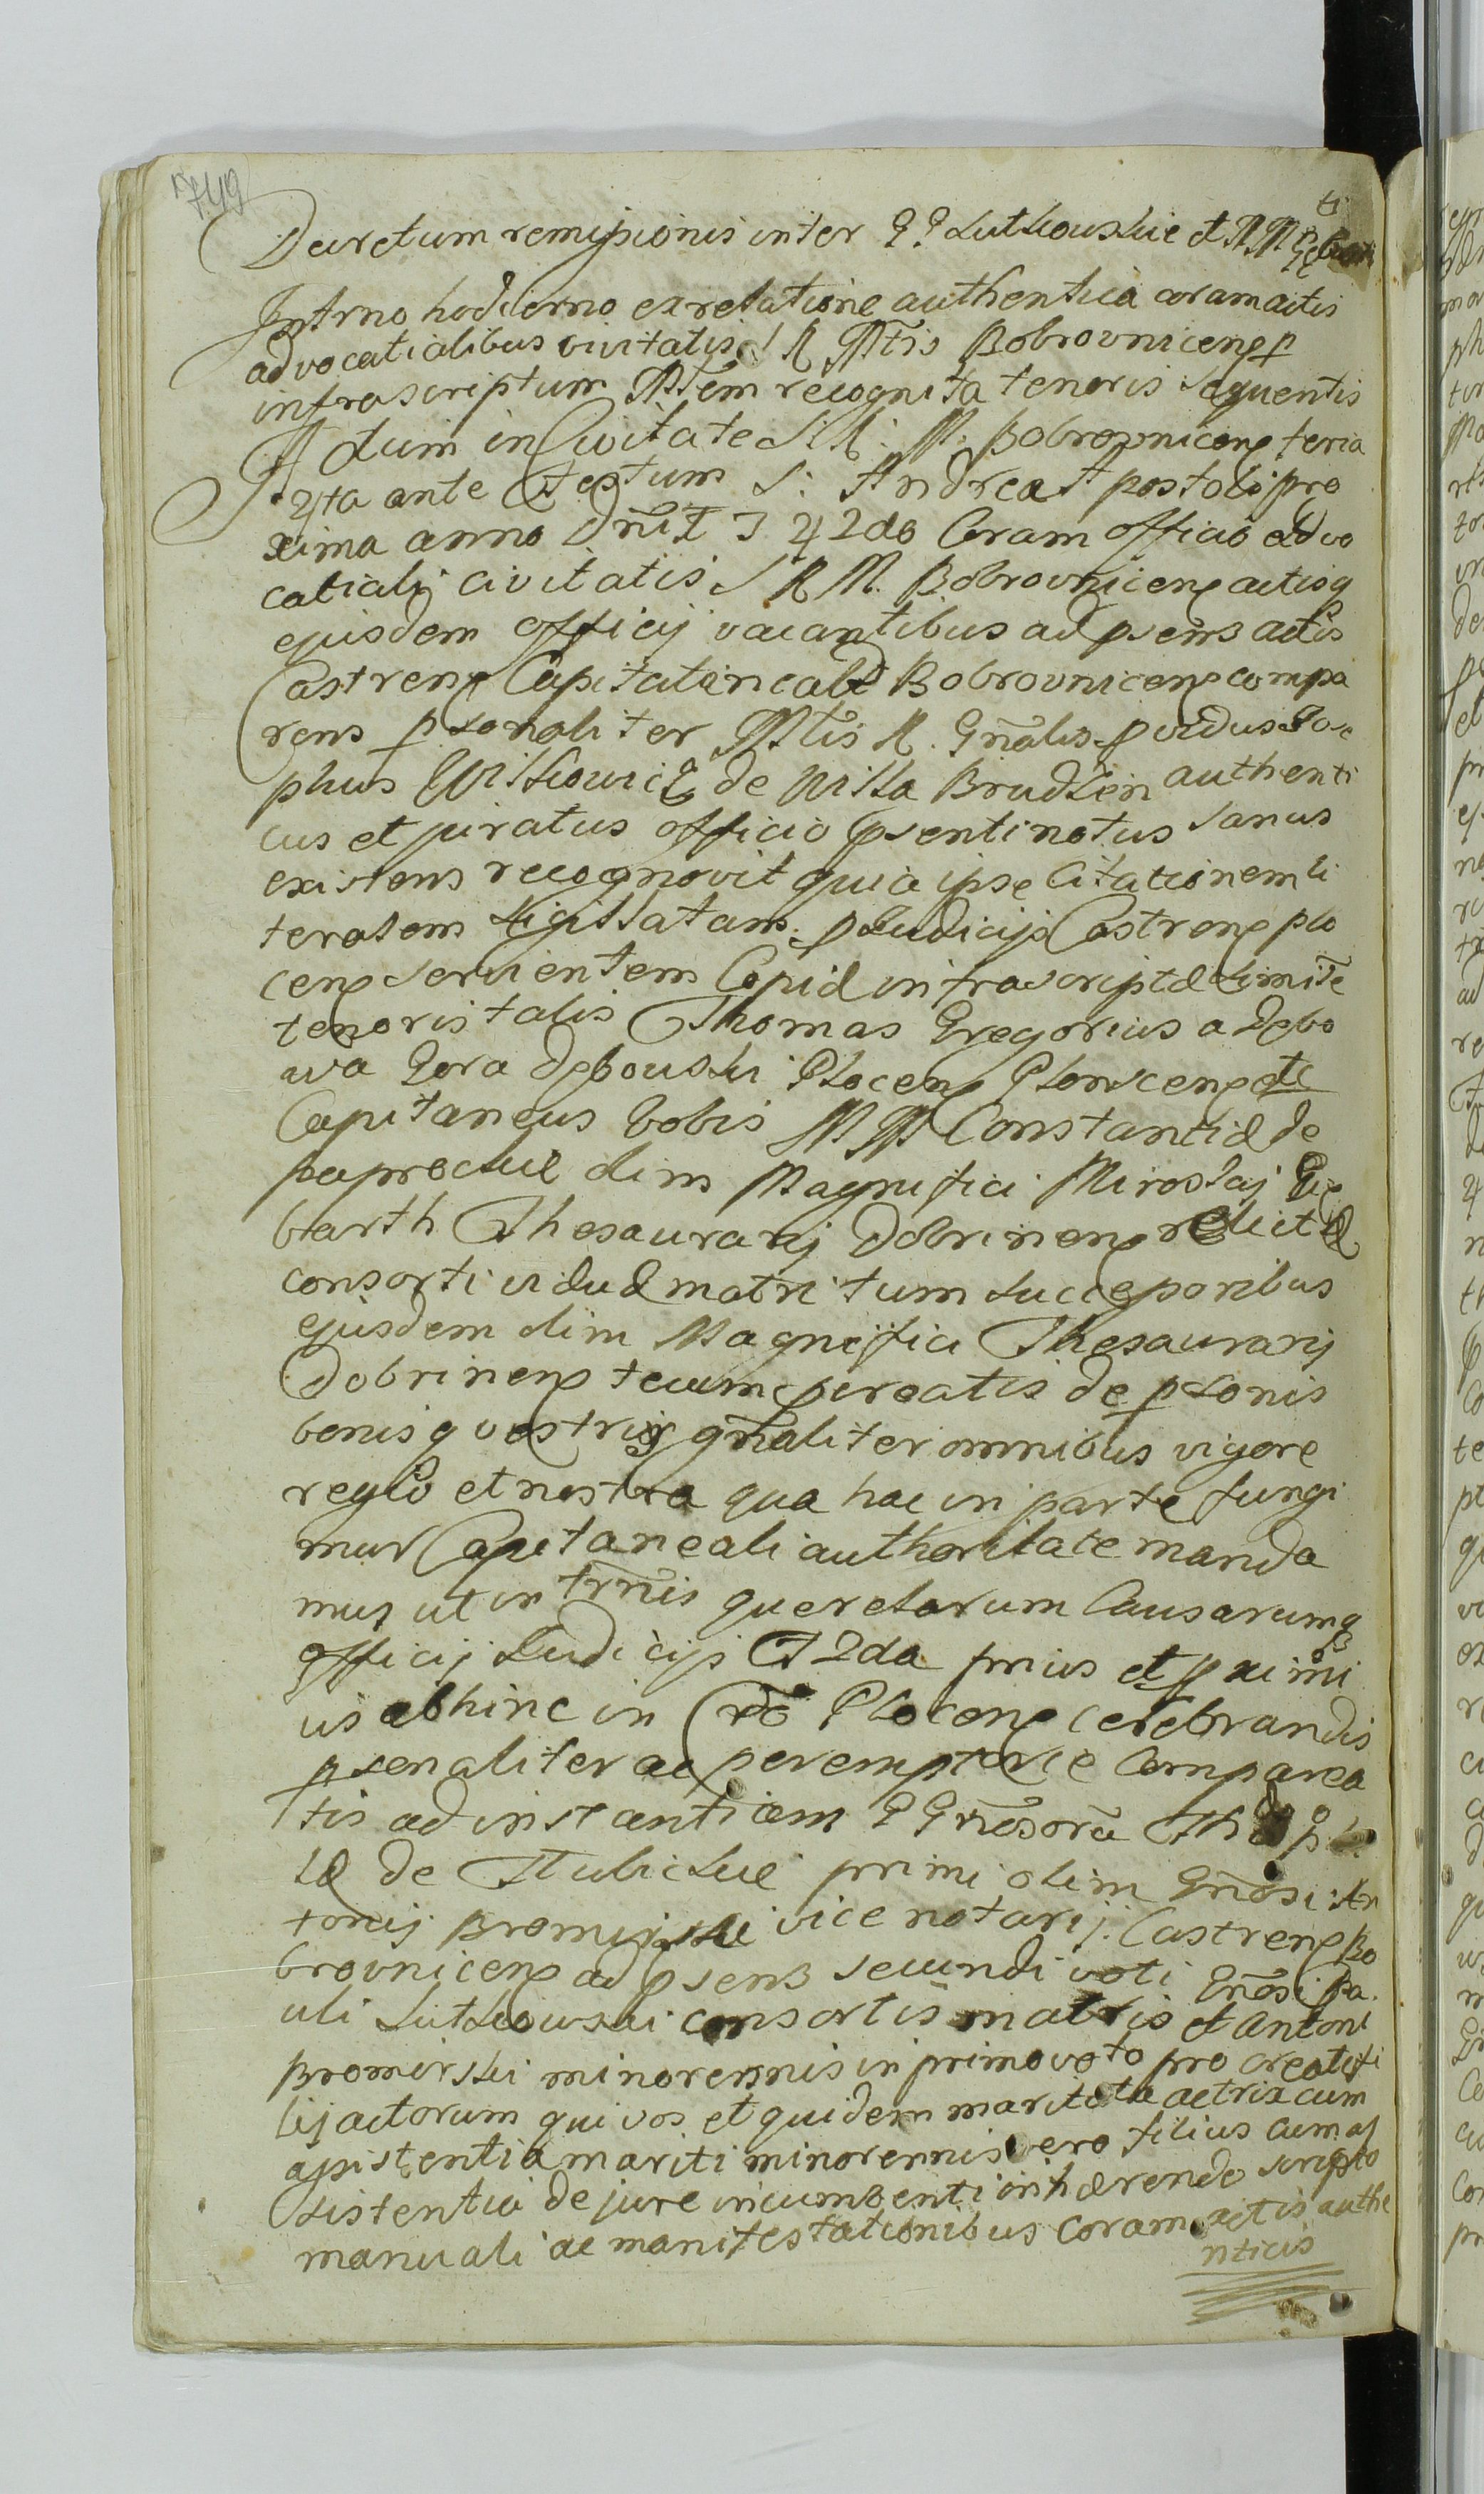 749
Decretum remissionis inter GG Lutkouskie et MM
Intrno hodierno ex relatione authentica coram actis
advocatialibus civitatis S R Mtis Bobrovnicens p
infrascriptum Mtem recognita tenoris sequentis
Actum in Civitate S: R: M: Bobrovnicens feria
4ta ante Festum S: Andrea Apostoli pro
xima anno Dni 1742do Coram officio advo
catiali civitatis S R M. Bobrovnicens actisq
ejusdem officij vacantibus ad psens actis
Castrens Capitaneale Bobrovnicens compa
rens psonaliter Mtis R. Gnalis pvidus Jose
phus Witkowicz de Villa Brudzen authenti
cus et juratus officio psenti notus sanus
existens recognovit quia ipse Citationem li
teralem sigillatam p Judicijs Castrens plo
cens servientem Copiæ infrascriptæ simile
tenoris talis Thomas Gregorius a Dębo
wa Gora Dębouski Plocens Plonscens etc
Capitaneus Vobis MM Constantiæ de
paprockie olim Magnifici Miroslaj Gię
barth Thesaurarij Dobrinens relictæ
consorti viduæ matri tum succeporibus
ejusdem olim Magnifici Thesaurarij
Dobrinens tecum pcreatis de psonis
bonisq vestris gnaliter omnibus vigore
regia et nostra qua hac in parte fungi
mur Capitaneali authoritate manda
mus ut in trnis querelarum Causarumq
officij Judicijs A 2da prius et pximi
us abhinc in Cro Plocens celebrandis
psonaliter ac peremptorie Comparea
tis ad instantiam GGnosorum
de Stubickie primi olim Gnosi An
tonij Bromirski vice notarij Castrens Bo
brovnicens ad psens secundi voti Gnosi Pa
uli Lutkowski consortis matris et Antoni
Bromirski minorennis in primo voto pro creati fi
lij actorum qui vos et quidem maritata actrix cum
assistentia mariti minorennis vero filius cum as
sistentia de jure incumbenti inhærendo scripto
manuali ac manifestationibus coram actis authe
nticis